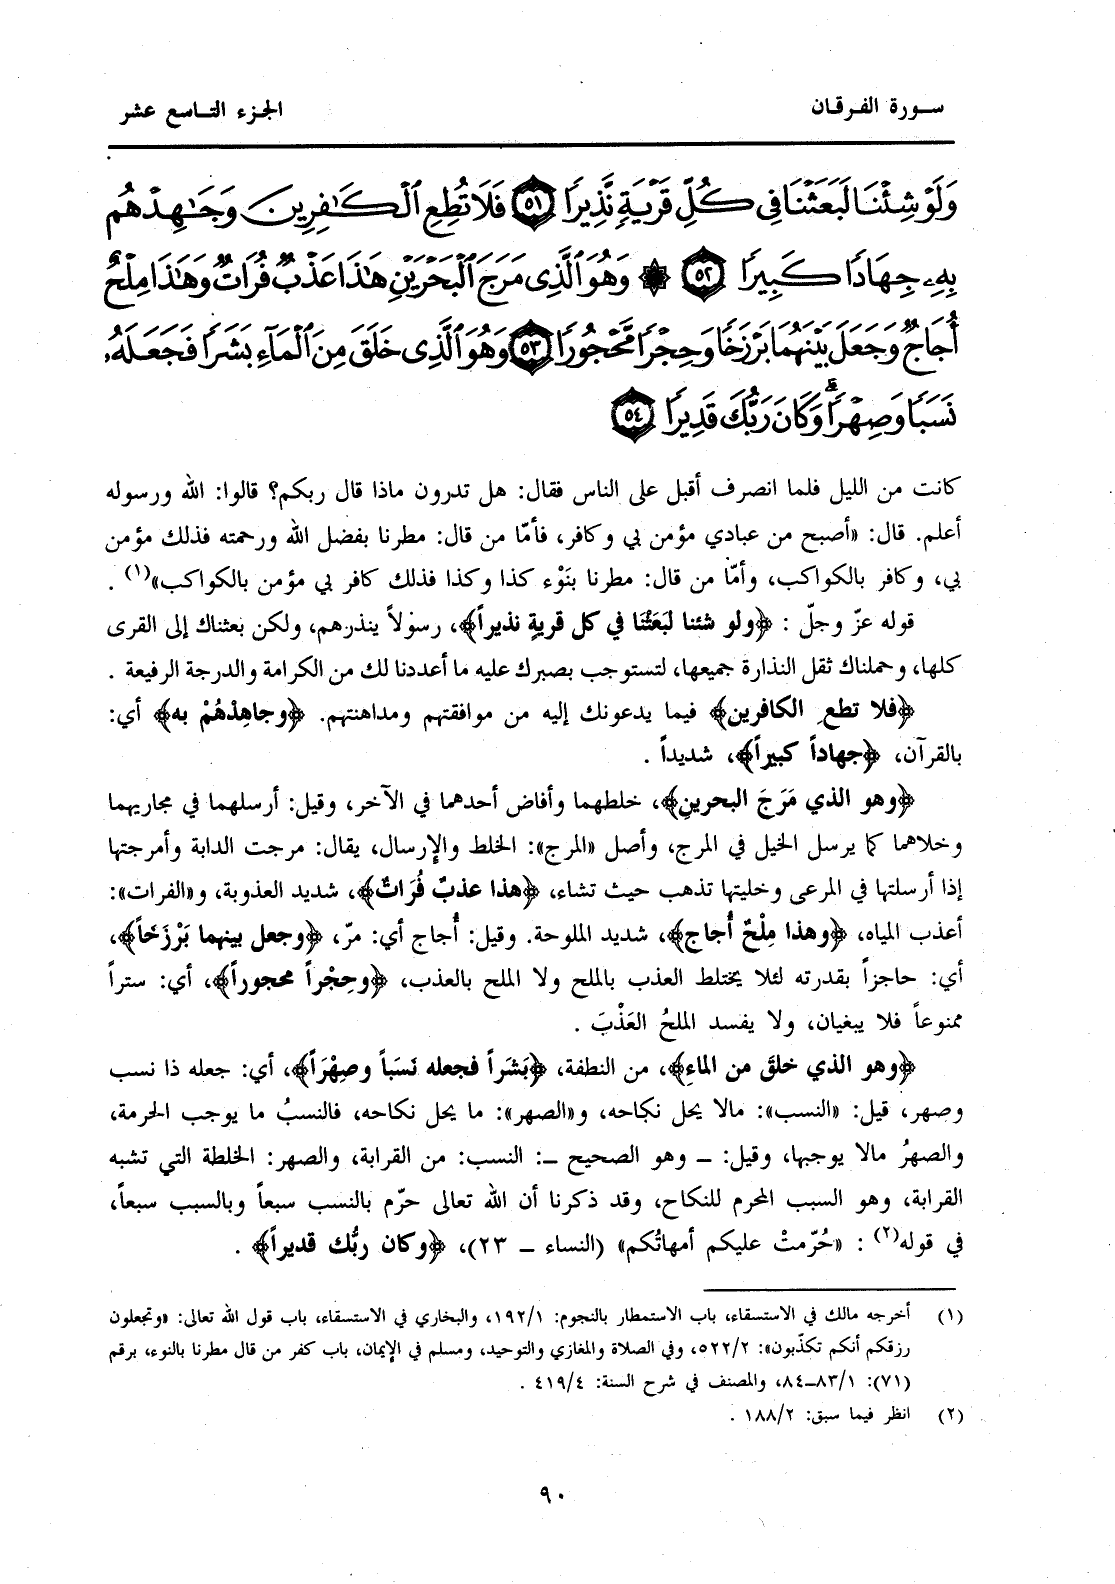 سورة الفرقان
الجزء التاسع عشر
وَلَوْ شِئْنَا لَبَعَثْنَا فِى كُلِّ قَرْيَةٍ نَّذِيرًا ٥١ فَلَا تُطِعِ ٱلْكَـٰفِرِينَ وَجَـٰهِدْهُم
بِهِۦ جِهَادًا كَبِيرًا ٥٢ ۞ وَهُوَ ٱلَّذِى مَرَجَ ٱلْبَحْرَيْنِ هَـٰذَا عَذْبٌ فُرَاتٌ وَهَـٰذَا مِلْحٌ
أُجَاجٌ وَجَعَلَ بَيْنَهُمَا بَرْزَخًا وَحِجْرًا مَّحْجُورًا ٥٣ وَهُوَ ٱلَّذِى خَلَقَ مِنَ ٱلْمَآءِ بَشَرًا فَجَعَلَهُۥ
نَسَبًا وَصِهْرًا ۗ وَكَانَ رَبُّكَ قَدِيرًا ٥٤
كانت من الليل فلما انصرف أقبل على الناس فقال: هل تدرون ماذا قال ربكم؟ قالوا: الله ورسوله
أعلم. قال: «أصبح من عبادي مؤمن بي وكافر، فأمّا من قال: مطرنا بفضل الله ورحمته فذلك مؤمن
بي، وكافر بالكواكب، وأمّا من قال: مطرنا بنَوْء كذا وكذا فذلك كافر بي مؤمن بالكواكب»(١) .
قوله عزّ وجلّ : ﴿ولو شئنا لبَعَثْنَا في كل قريةٍ نذيراً﴾، رسولاً ينذرهم، ولكن بعثناك إلى القرى
كلها، وحملناك ثقل النذارة جميعها، لتستوجب بصبرك عليه ما أعددنا لك من الكرامة والدرجة الرفيعة .
﴿فلا تطعِ الكافرين﴾ فيما يدعونك إليه من موافقتهم ومداهنتهم. ﴿وجاهِدْهُمْ به﴾ أي:
بالقرآن، ﴿جهاداً كبيراً﴾، شديداً .
﴿وهو الذي مَرَجَ البحرينِ﴾، خلطهما وأفاض أحدهما في الآخر، وقيل: أرسلهما في مجاريهما
وخلاهما كما يرسل الخيل في المرج، وأصل «المرج»: الخلط والإرسال، يقال: مرجت الدابة وأمرجتها
إذا أرسلتها في المرعى وخليتها تذهب حيث تشاء، ﴿هذا عذبٌ فُرَاتٌ﴾، شديد العذوبة، و«الفرات»:
أعذب المياه، ﴿وهذا مِلْحٌ أُجاج﴾، شديد الملوحة. وقيل: أُجاج أي: مرّ، ﴿وجعل بينهما بَرْزَخاً﴾،
أي: حاجزاً بقدرته لئلا يختلط العذب بالملح ولا الملح بالعذب، ﴿وحِجْراً محجوراً﴾، أي: ستراً
ممنوعاً فلا يبغيان، ولا يفسد الملحُ العَذْبَ .
﴿وهو الذي خلقَ من الماءِ﴾، من النطفة، ﴿بَشَراً فجعله نَسَبَاً وصِهْرَاً﴾، أي: جعله ذا نسب
وصهر، قيل: «النسب»: مالا يحل نكاحه، و«الصهر»: ما يحل نكاحه، فالنسبُ ما يوجب الحرمة،
والصهرُ مالا يوجبها، وقيل: ـ وهو الصحيح ـ: النسب: من القرابة، والصهر: الخلطة التي تشبه
القرابة، وهو السبب المحرم للنكاح، وقد ذكرنا أن الله تعالى حرّم بالنسب سبعاً وبالسبب سبعاً،
في قوله(٢) : «حُرّمتْ عليكم أمهاتُكم» (النساء ـ ٢٣)، ﴿وكان ربُّك قديراً﴾ .
(١) أخرجه مالك في الاستسقاء، باب الاستمطار بالنجوم: ١٩٢/١، والبخاري في الاستسقاء، باب قول الله تعالى: «وتجعلون
رزقكم أنكم تكذّبون»: ٥٢٢/٢، وفي الصلاة والمغازي والتوحيد، ومسلم في الإيمان، باب كفر من قال مطرنا بالنوء، برقم
(٧١): ٨٣/١ـ٨٤، والمصنف في شرح السنة: ٤١٩/٤ .
(٢) انظر فيما سبق: ١٨٨/٢ .
٩٠